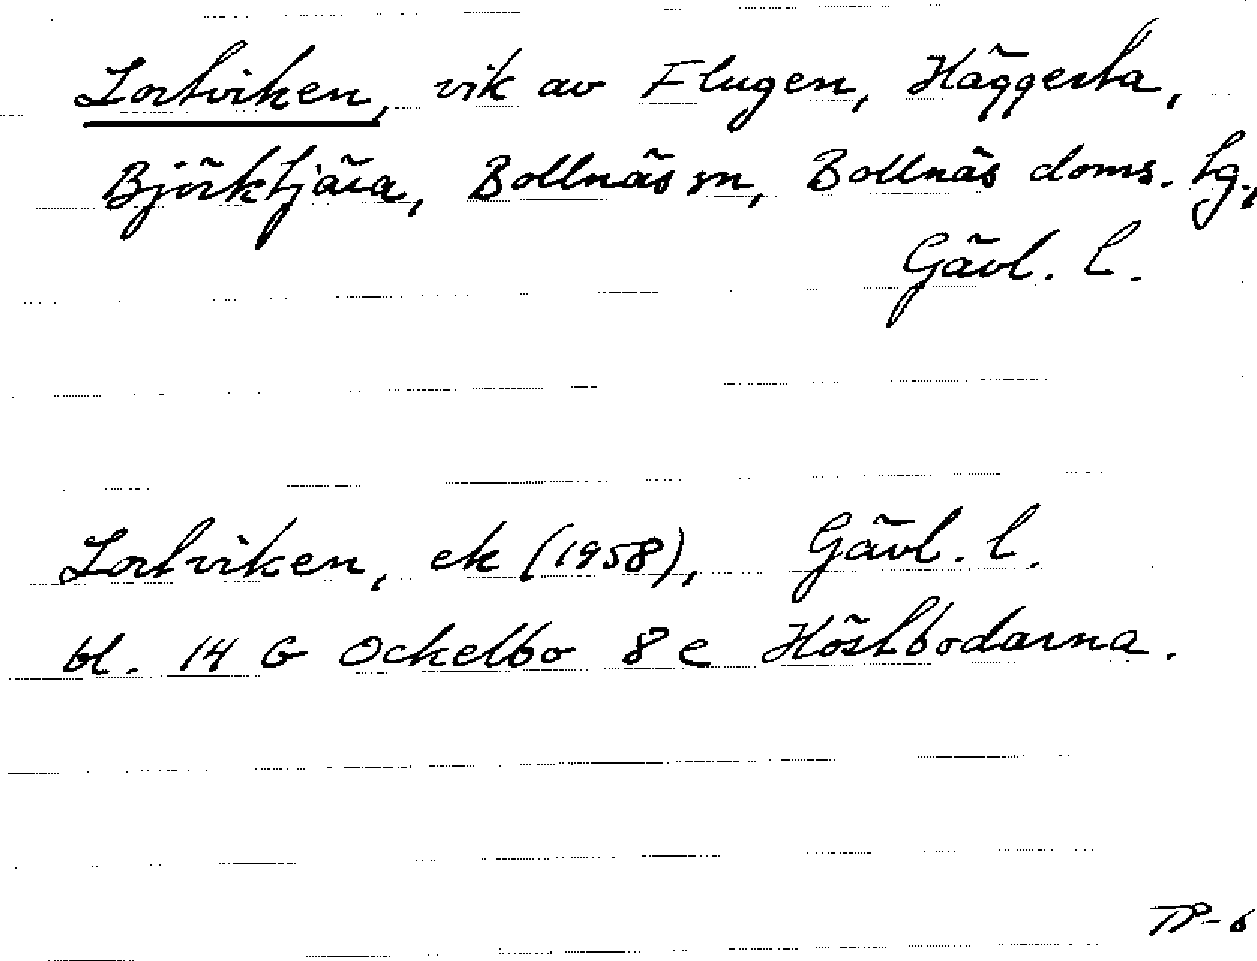 Lortviken, vik av Flugen, Häggesta,
Björktjära, Bollnäs sn, Bollnäs doms. tg,
Gävl. l.
Lortviken, ek (1958), Gävl. l.
bl. 14 G Ockelbo 8 e Höstbodarna.